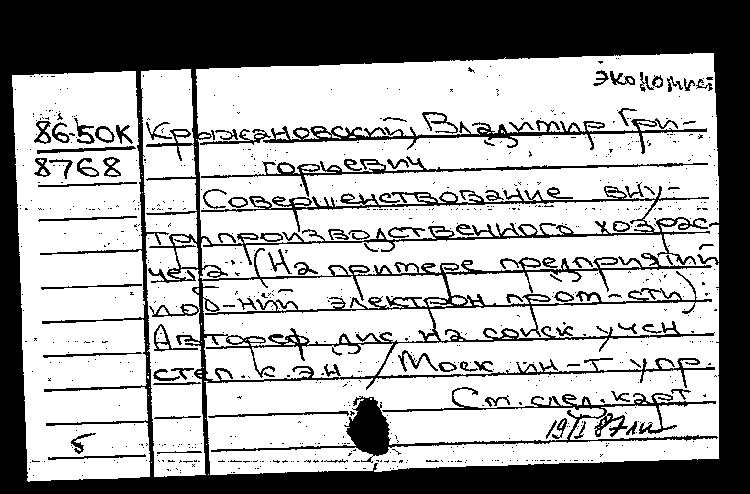 экономика
86-50К Крыжановский, Владимир Гри-
8768 горьевич
Совершенствование вну-
трипроизводственного хозрас-
чета: (На примере предприятий
и об-ний электрон. пром-сти):
Автореф. дис. на соиск. учен.
степ. к.э.н. / Моск. ин-т упр.
См. след. карт.
19/I 87
б